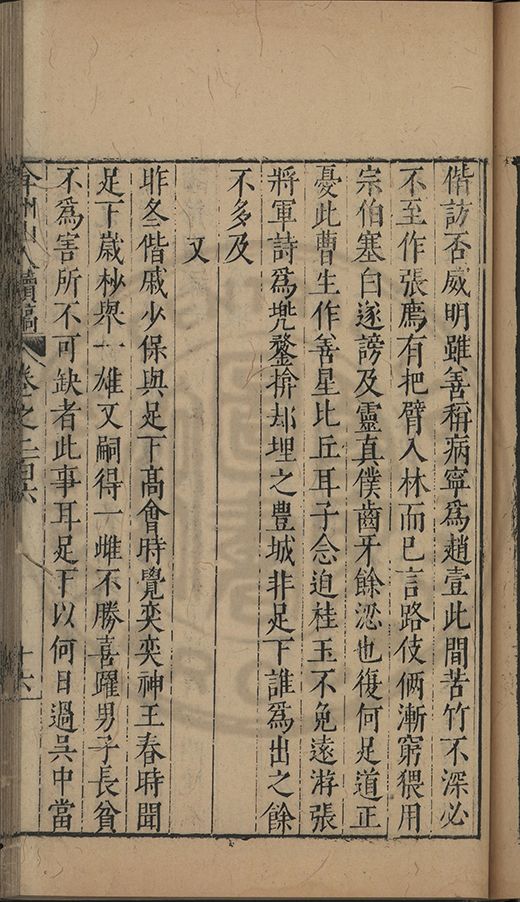 偕訪否威明雖善稱病寧爲趙壹此間苦竹不深必
不至作張廌有把臂入林而已言路伎倆漸窮猥用
宗伯塞白遂謗及靈真僕齒牙餘涊也復何足道正
憂此曹生作善星比丘耳子念迫桂玉不免遠游張
將軍詩爲兠鍪揜却埋之豊城非足下誰爲出之餘
不多及
又
昨冬偕戚少保與足下高會時覺奕奕神王春時聞
足下歲杪舉一雄又嗣得一雌不勝喜躍男子長貧
不爲害所不可缺者此事耳足下以何日過吳中當
弇州山人續稿 卷之二百六 十六